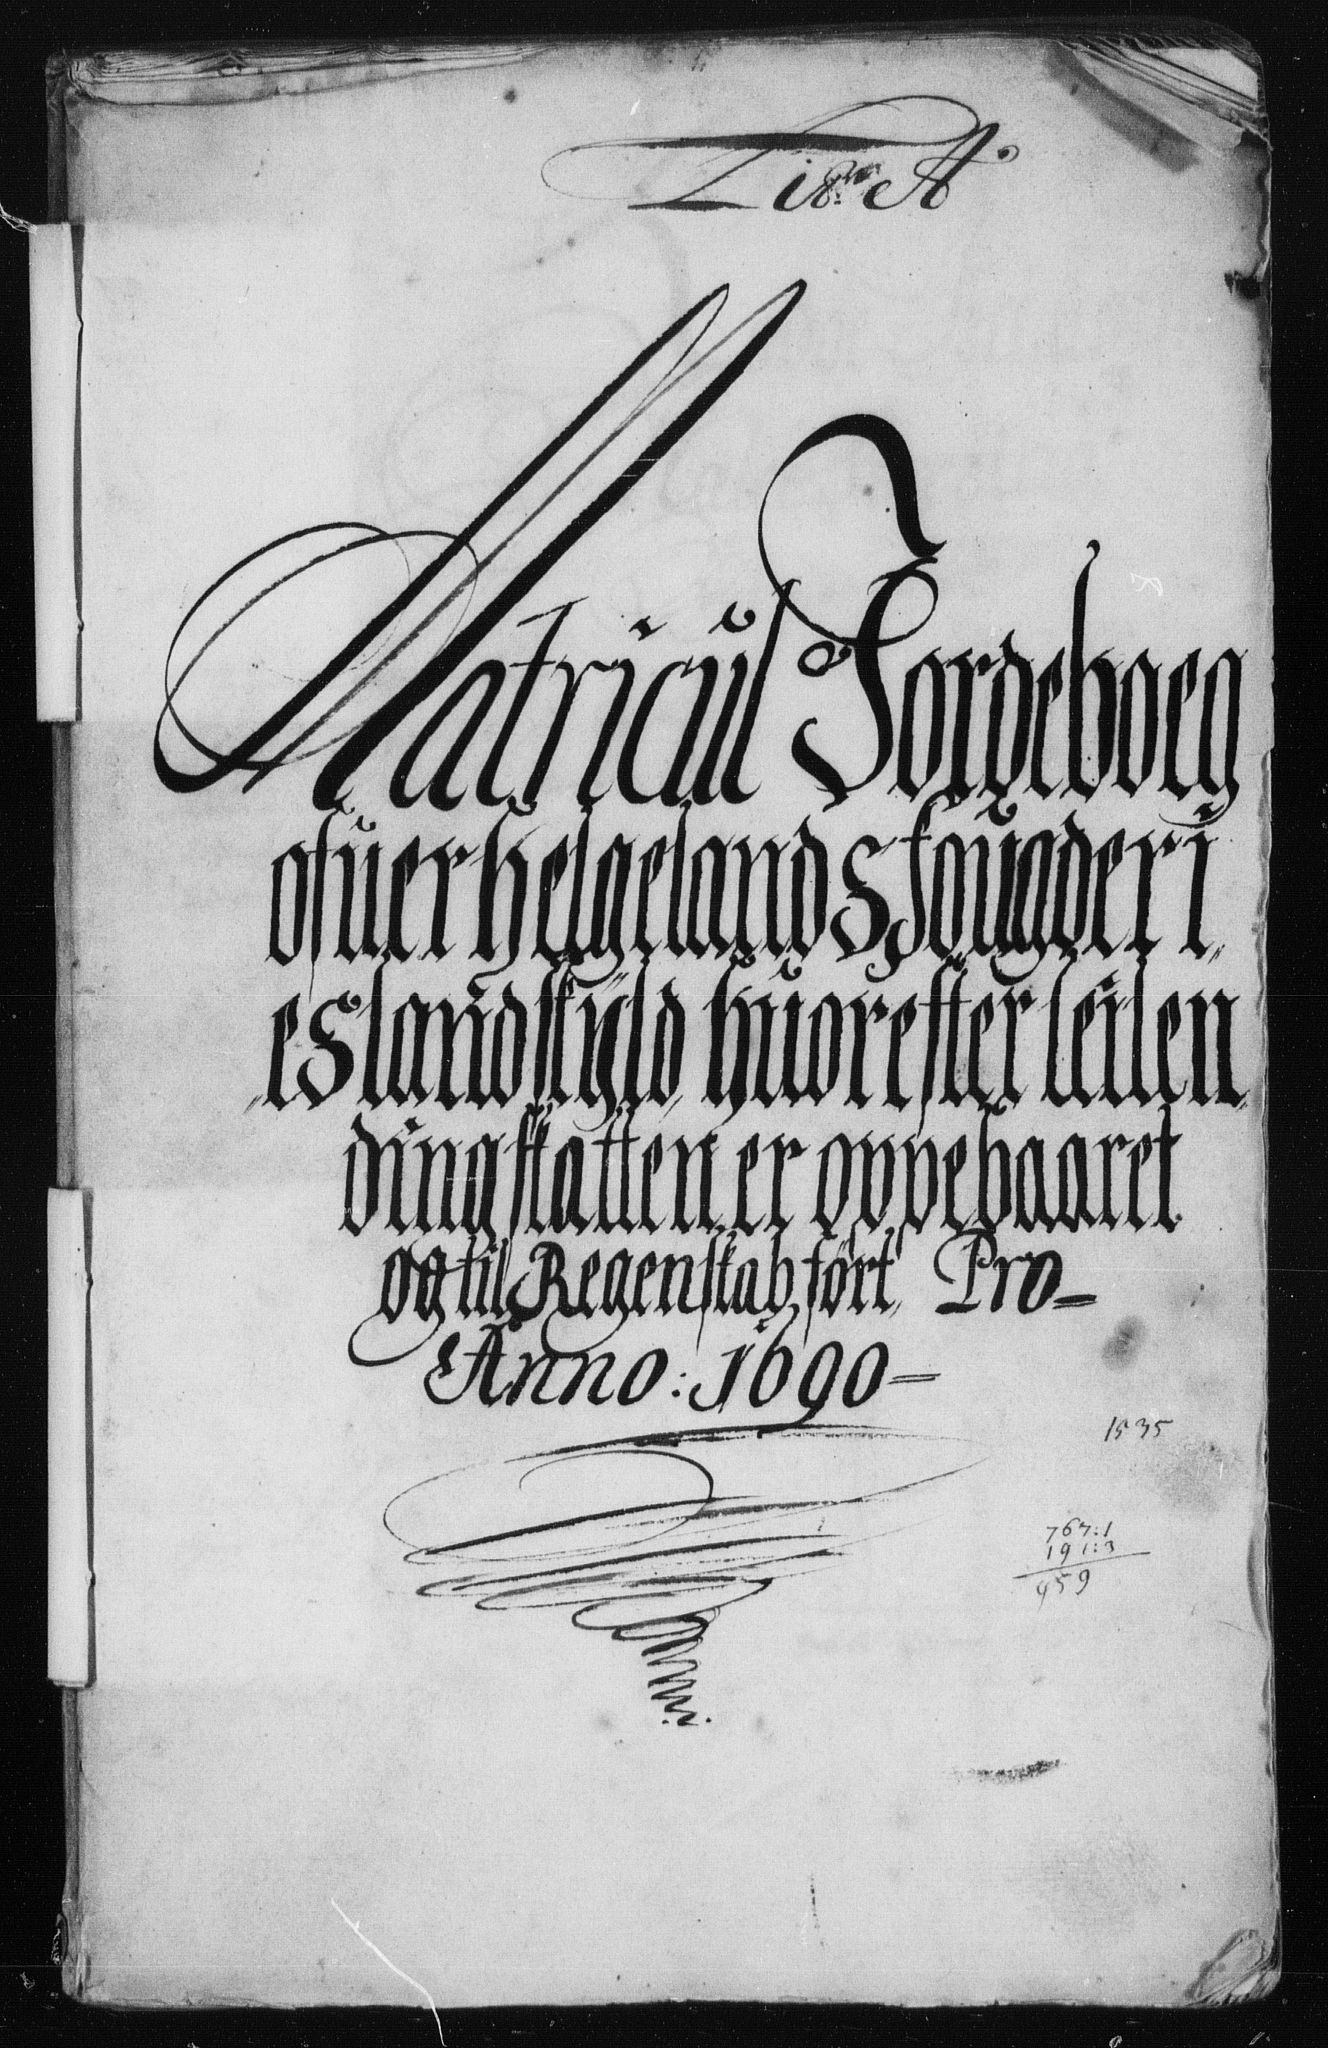 Lit. A
Matricul Jordeboeg
ofuer helgelands fougderi
es landskyld, huorefter leilen
dingskatten er oppebaaret
og til Regenskab fört, Pro
Anno: 1690
1535
767:1
191:3
959